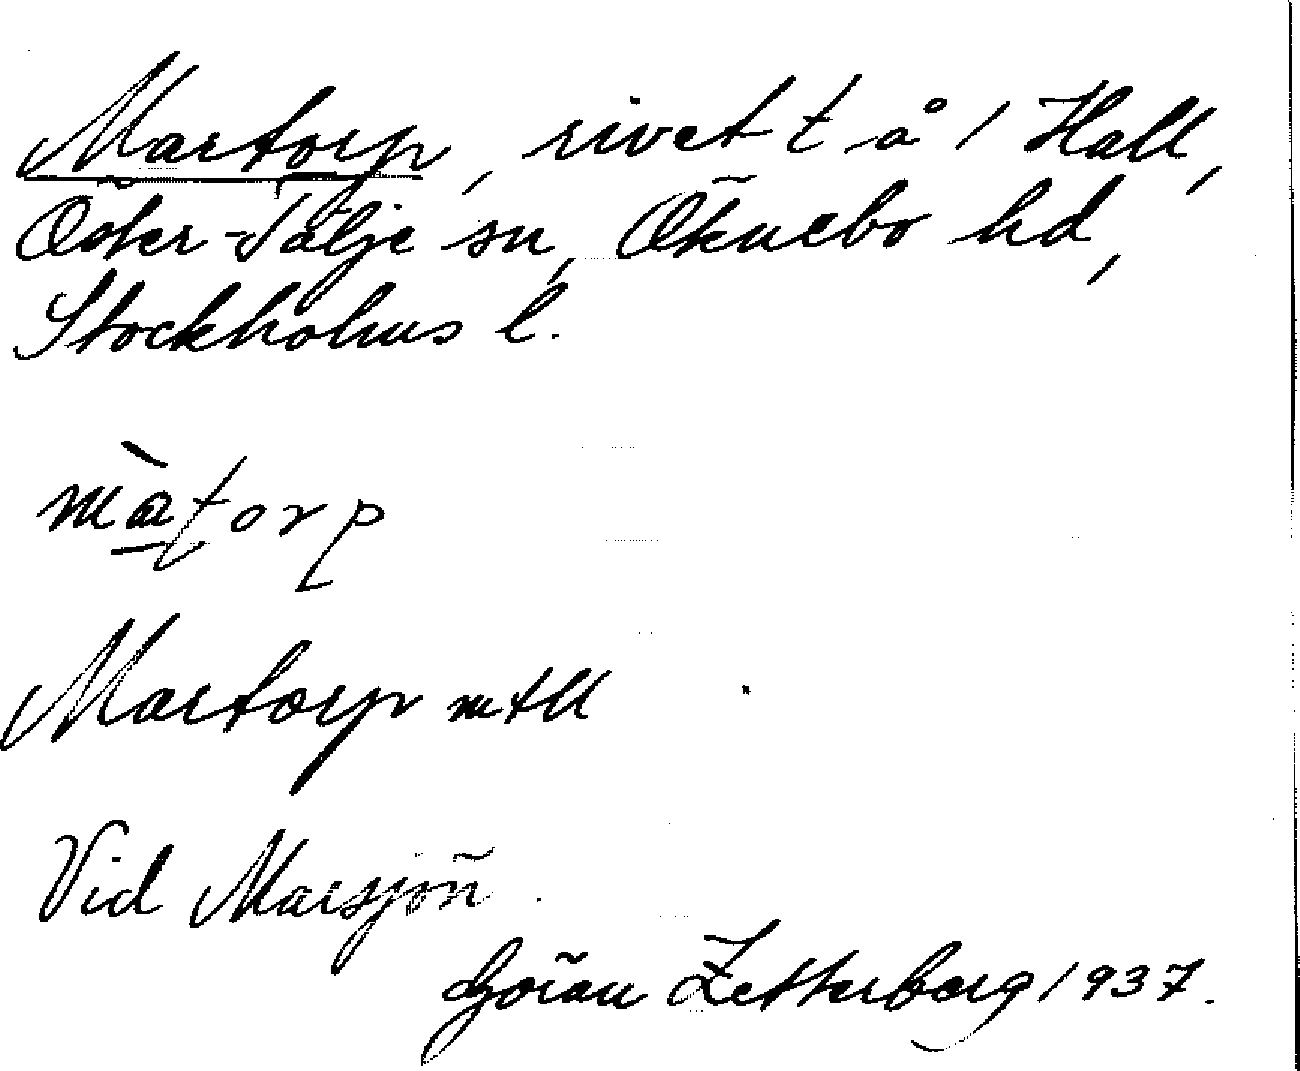 Martorp, rivet t å / Hall,
Öster-Tälje sn, Öknebo hd,
Stockholms l.
màtorp
Martorp mtll
Vid Marsjön.
Göran Zetterberg 1937.